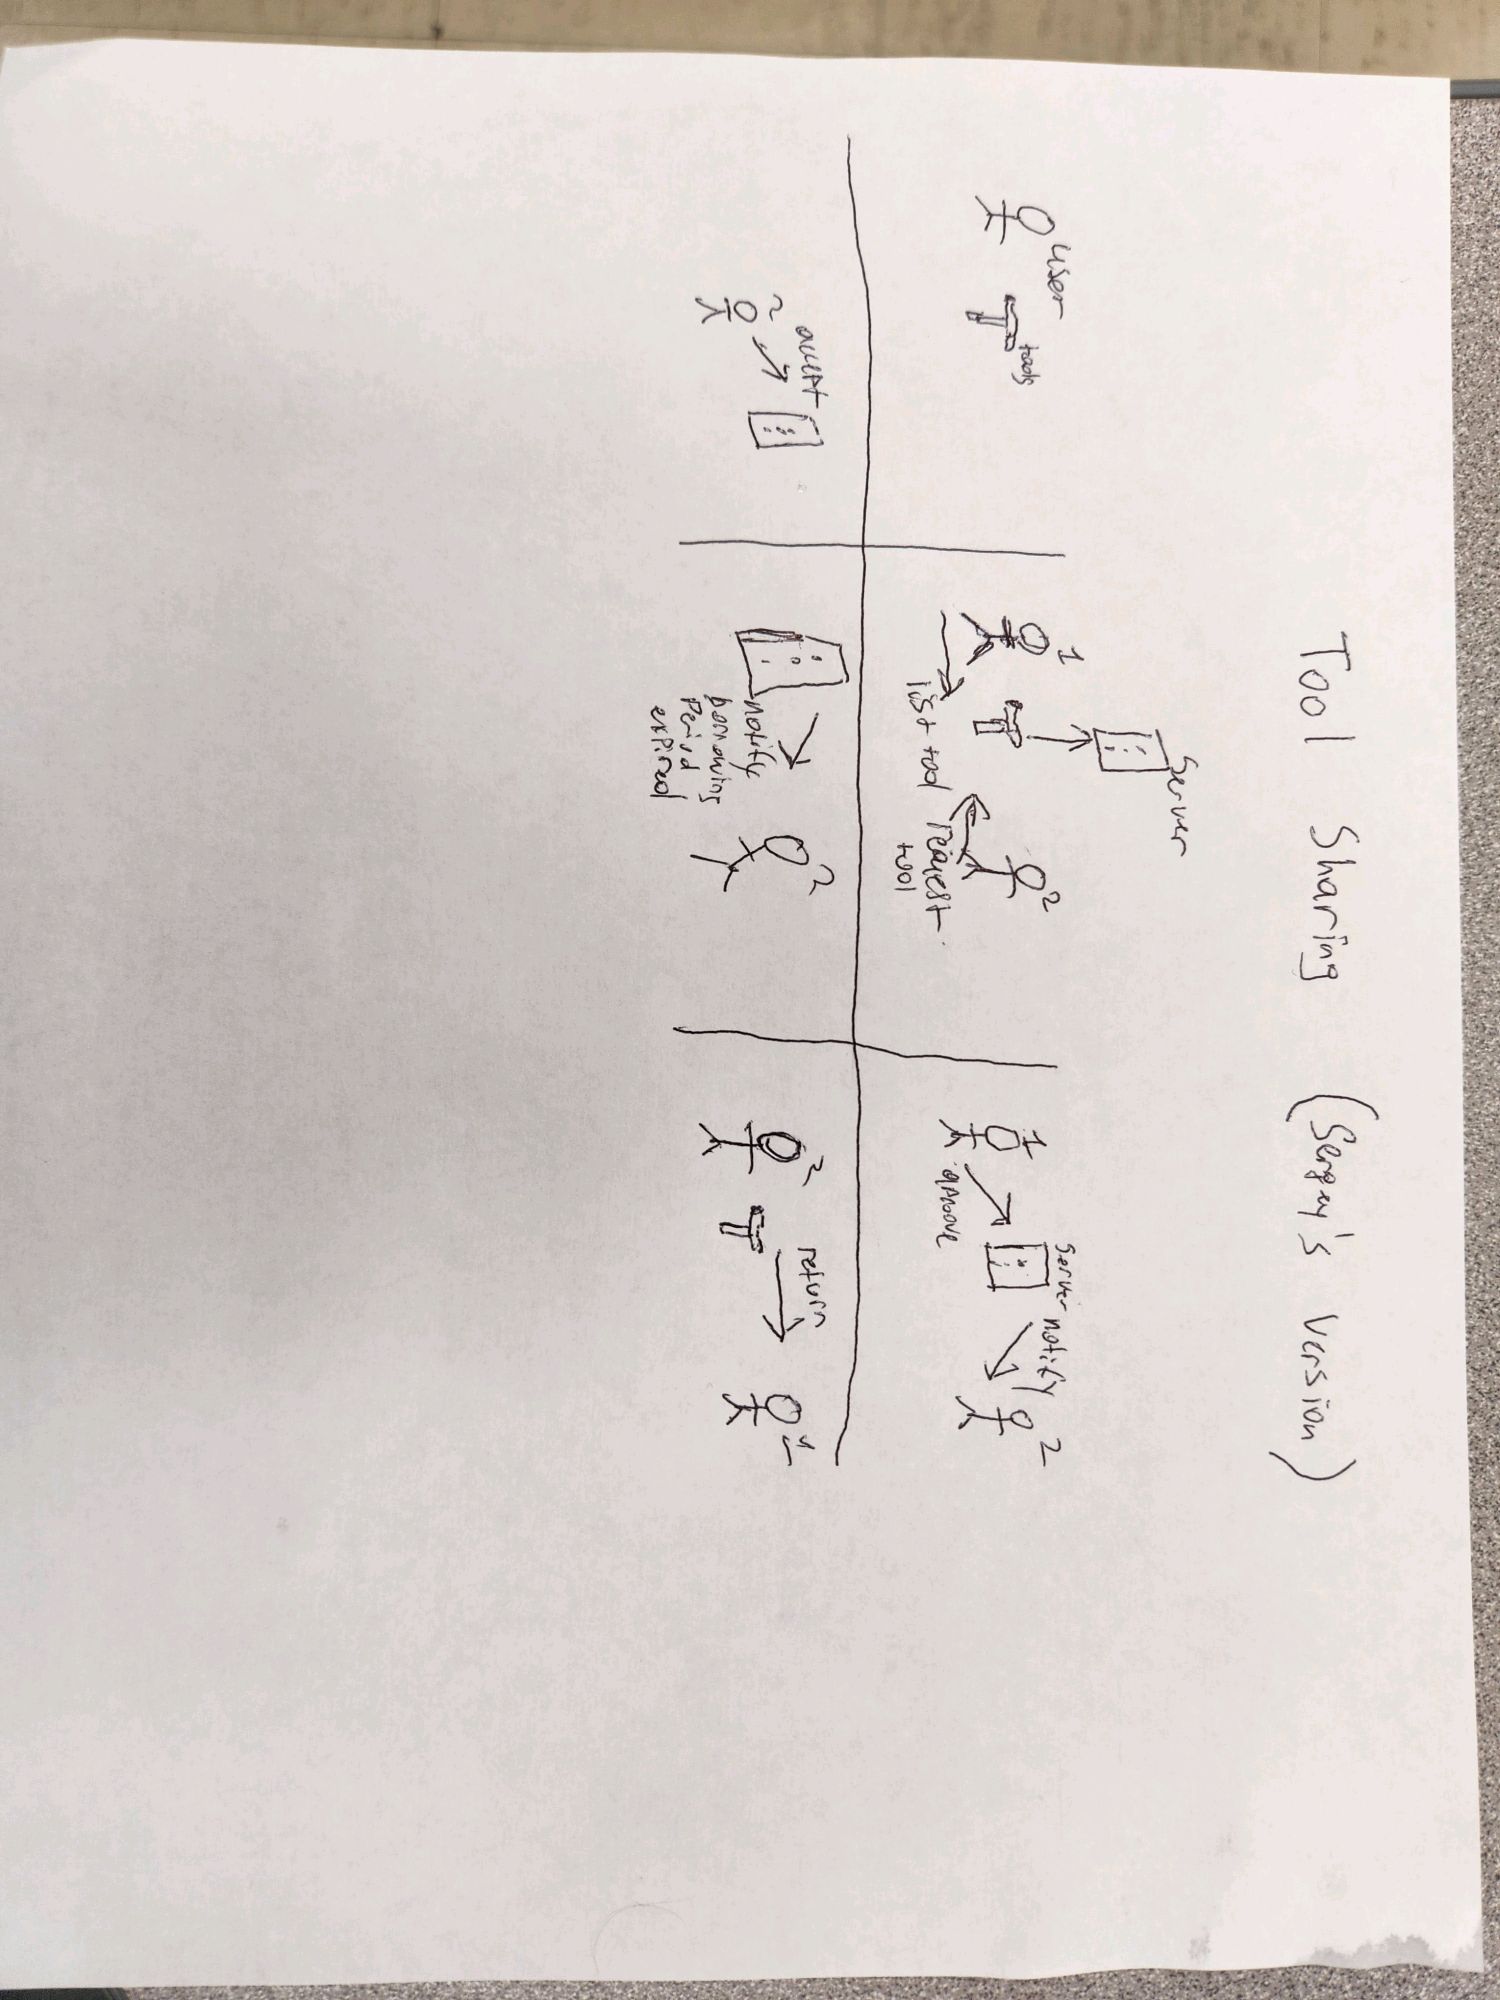 Tool Sharing (Sergey's version)
user
tools
1
Server
2
list tool
request
tool
1
approve
server
notify
2
2
accept
notify
borrowing
Period
expired
2
2
return
1